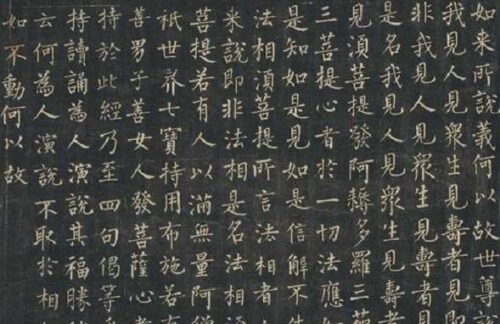 如来所說義何以故世尊說
我見人見衆生見壽者見
非我見人見衆生見壽者
是名我見人見衆生見壽者
見湏菩提發阿耨多羅三藐
三菩提心者於一切法應如
是知如是見如是信解不
法相湏菩提所言法相者
来說即非法相是名法相湏
菩提若有人以滿無量阿僧
祇世界七寶持用布施若有
善男子善女人發菩薩心者
持於此經乃至四句偈等
持讀誦為人演說其福勝
云何為人演說不取於相
如不動何以故